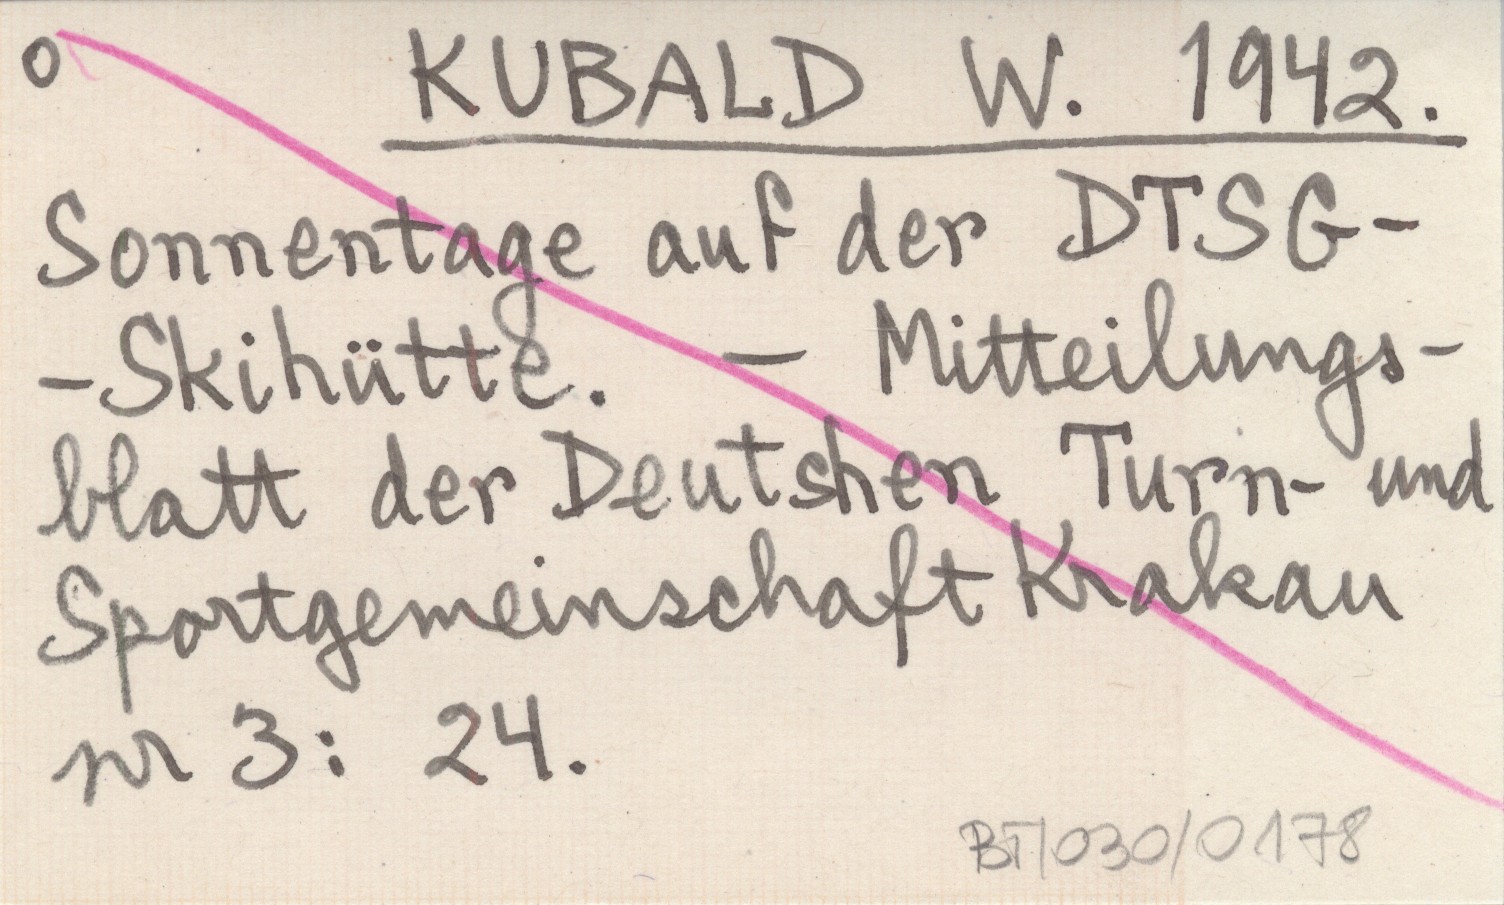 o KUBALD W. 1942.
Sonnentage auf der DTSG-
-Skihütte. — Mitteilungs-
blatt der Deutshen Turn- und
Sportgemeinschaft Krakau
nr 3: 24.
BT/030/0178